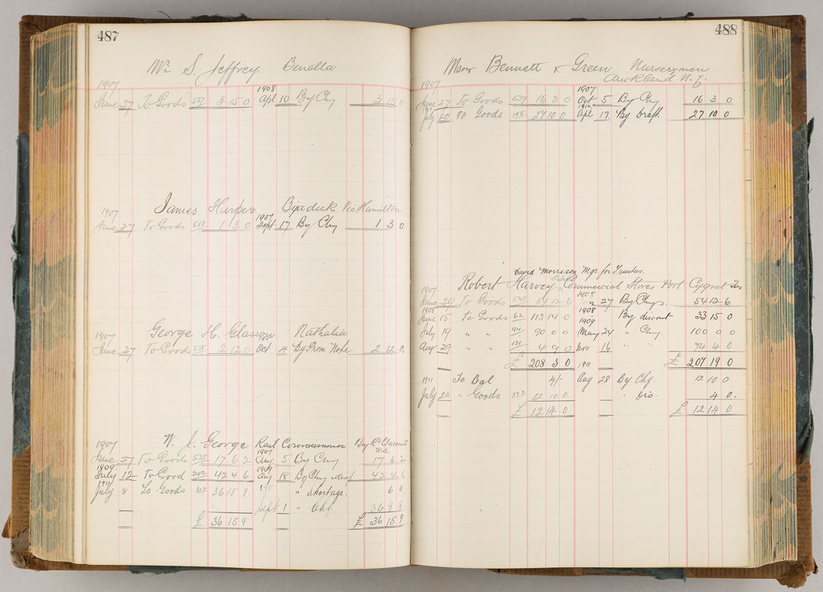 487
Mr S. Jeffrey Benalla
1907 1908
June 27 To Goods 3 15 0 Apl 10 By Chq 3 15 0
James Harper Byaduck Via Hamilton
1907 1907
June 27 To Goods 1 3 0 Sept 17 By Chq 1 3 0
George H. Glasson Nathalia
1907
June 27 To Goods 2 12 0 Oct 4 By Prom Note 2 12 0
1907 W. S. George
1907
June 27 To Goods 17 6 2 Aug 5 By Chq 17 6 2
1909 1909
July 12 To Good 42 4 6 Aug 18 By Chq 42 4 6
1911
July 8 To Goods 36 15 9 " shortage 6 0
Sept 1 " Chq 36 9 9
£ 36 15 9 £ 36 15 9
488
Bennett & Green Nurserymen
Auckland N.Z.
1907 1907
June 27 To Goods 16 3 0 5 By Chq 16 3 0
July 20 Goods 27 10 0 Apl 17 By Draft 27 10 0
David Morrison Mgr for Trustees
Robert Harvey Commercial Stores Port Cygnet Tas
1907 1908
June 20 To Goods 54 12 6 27 By Chqs 54 12 6
1908 1908
June 15 To Goods 62 113 14 0 By discount 33 15 0
1909
July 19 " " 90 0 0 May 24 " Chq 100 0 0
Aug 29 " " 4 9 0 Nov 16 " " 74 4 0
£ 208 3 0 £ 207 19 0
1911 To Bal 4/- 1911 Aug 28 By Chq 12 10 0
July 22 " Goods 12 10 0 " Dis 4 0
£ 12 14 0 £ 12 14 0